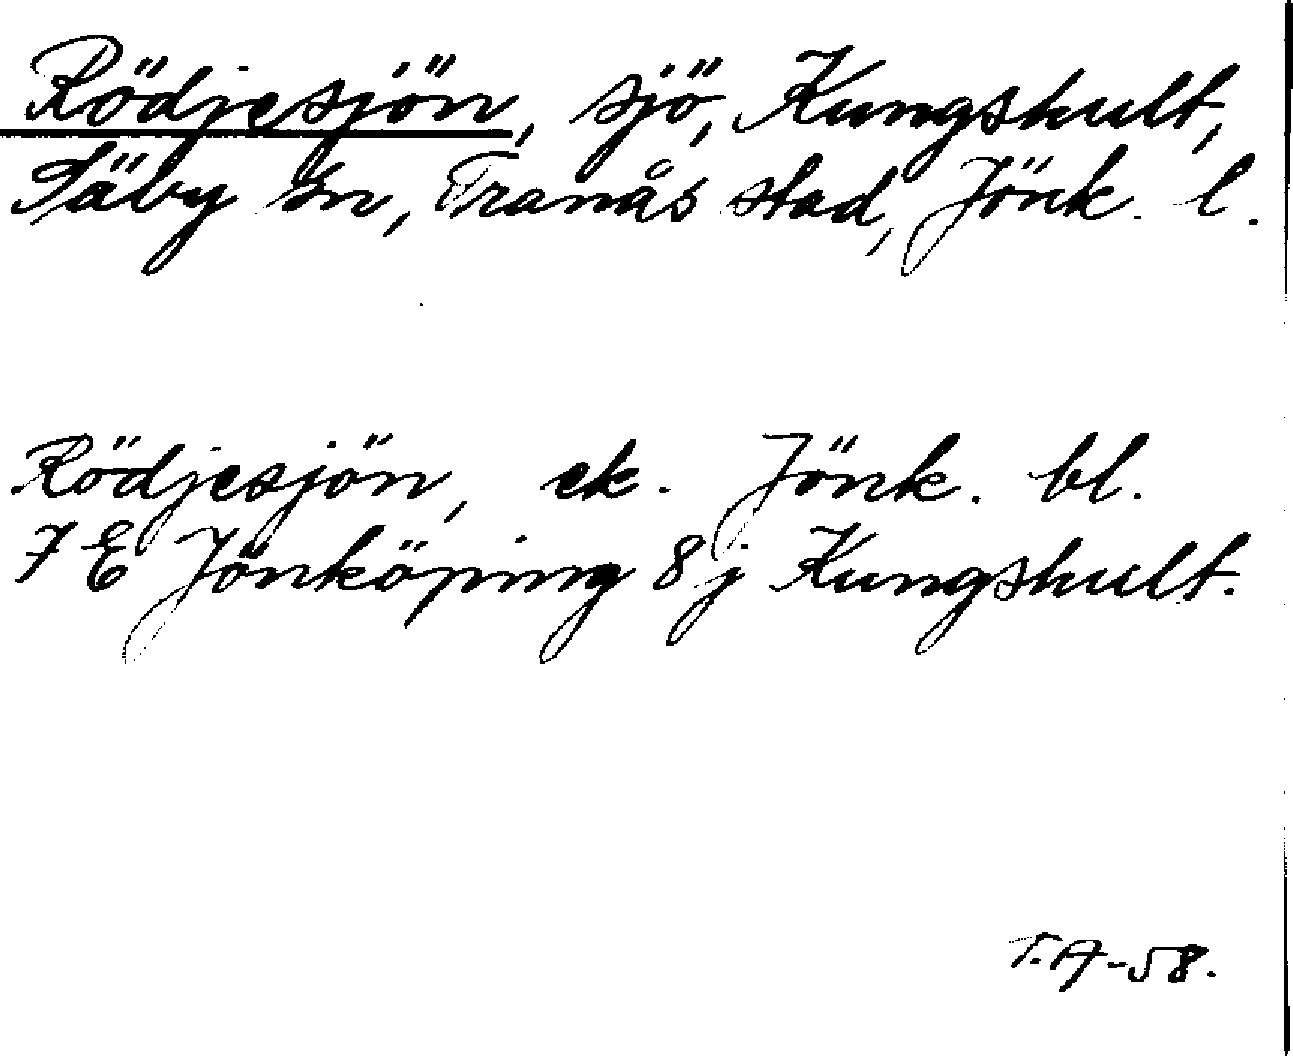 Rödjesjön, sjö, Kungshult,
Säby sn, Tranås stad, Jönk. l.
Rödjesjön, ek. Jönk. bl.
7 E Jönköping 8 j Kungshult.
T.A-58.